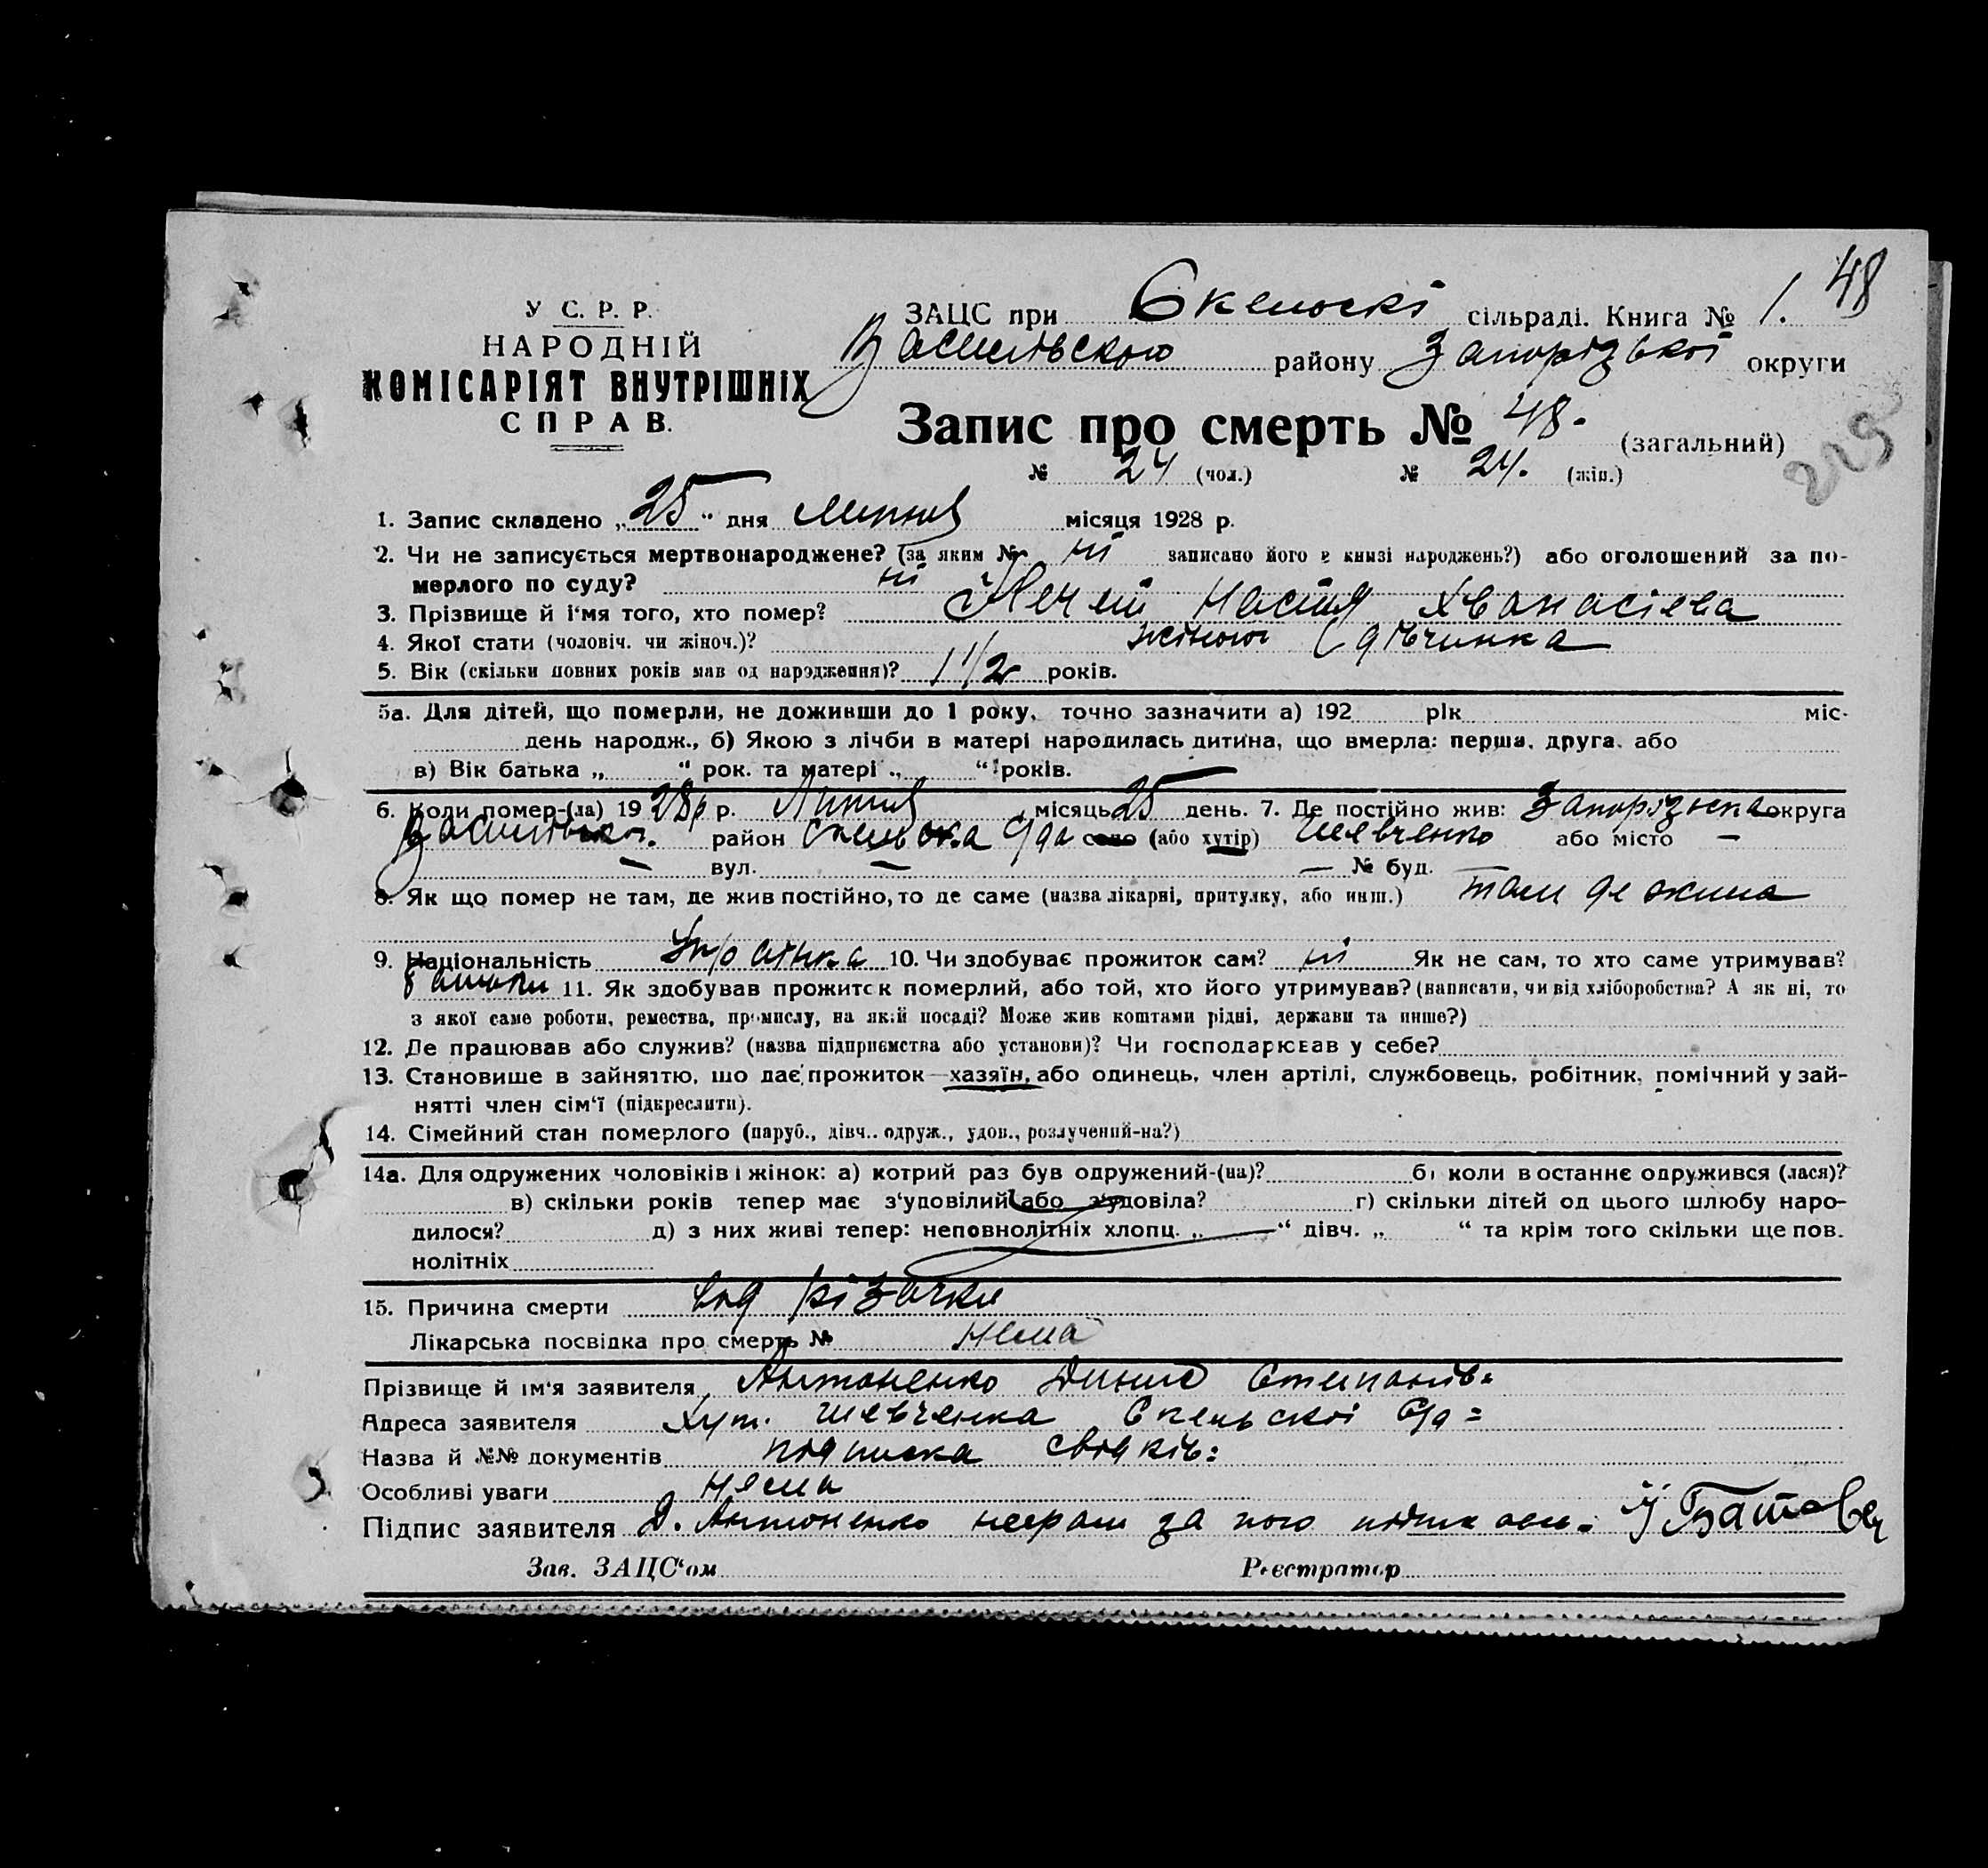 48
У С. Р. Р.
НАРОДНІЙ
КОМІСАРІЯТ ВНУТРІШНІХ
СПРАВ.
ЗАЦС при Скельоскі сільраді. Книга № 1.
Василівского району Запорізької округи
Запис про смерть № 48. (загальний)
№ 24 (чол.) № 24. (жін.)
225
1. Запис складено „25“ дня Липня місяця 1928 р.
2. Чи не записується мертвонароджене? (за яким № ні записано його в книзі народжень?) або оголошений за по-
мерлого по суду? ні
3. Прізвище й і'мя того, хто помер? Настя Хванасіева
4. Якої стати (чоловіч. чи жіноч.)? жіночої (дівчинка
5. Вік (скільки повних років мав од народження)? 1 1/2 років.
5а. Для дітей, що померли, не доживши до 1 року, точно зазначити а) 192 рік міс.
день народж., б) Якою з лічби в матері народилась дитина, що вмерла: перша, друга, або
в) Вік батька „ “ рок. та матері „ “ років.
6. Коли помер-(ла) 1928р р. Липня місяць 25 день. 7. Де постійно жив: Запорізька округа
Василівськ. район Скельска с/да село (або хутір) Шевченко або місто —
— вул. — — № буд.
8. Як що помер не там, де жив постійно, то де саме (назва лікарні, притулку, або инш.) там де жила
9. Національність Українка 10. Чи здобуває прожиток сам? ні Як не сам, то хто саме утримував?
батьки 11. Як здобував прожиток померлий, або той, хто його утримував? (написати, чи від хліборобства? А як ні, то
з якої саме роботи, ремества, промислу, на якій посаді? Може жив коштами рідні, держави та инше?)
12. Де працював або служив? (назва підприємства або установи)? Чи господарював у себе?
13. Становише в зайняттю, що дає прожиток—хазяїн, або одинець, член артілі, службовець, робітник, помічний у зай-
нятті член сім'ї (підкреслити).
14. Сімейний стан померлого (паруб., дівч.. одруж., удов., розлучений-на?)
14а. Для одружених чоловіків і жінок: а) котрий раз був одружений-(на)? б) коли востаннє одружився (лася)?
в) скільки років тепер має з'удовілий або з'удовіла? г) скільки дітей од цього шлюбу наро-
дилося? д) з них живі тепер: неповнолітніх хлопц. „ “ дівч. „ “ та крім того скільки ще пов.
нолітніх
15. Причина смерти від різачки
Лікарська посвідка про смерть № Нема
Прізвище й ім'я заявителя Антоненко Денис Степанів.
Адреса заявителя Хут. Шевченка Скельскої с/да =
Назва й №№ документів підписка свідків:
Особливі уваги Нема
Підпис заявителя Д. Антоненко неграм за його
Зав. ЗАЦС'ом Реєстратор